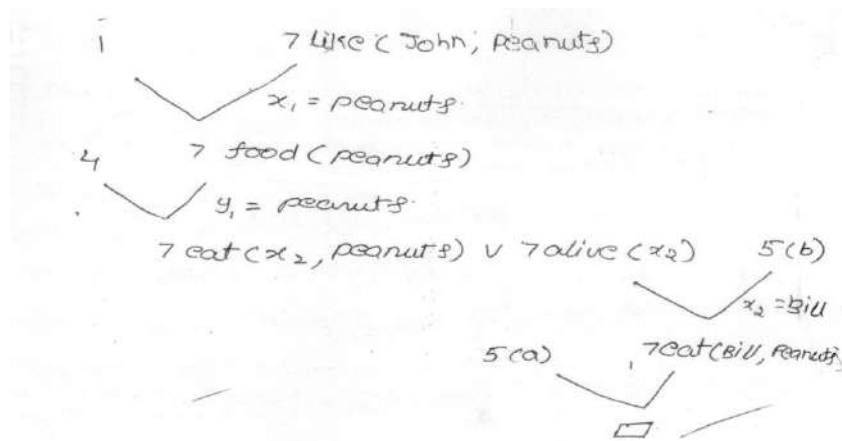 1 7 Like (John, Peanuts)
x₁ = peanuts.
4 7 food (peanuts)
y₁ = peanuts.
7 eat (x₂, peanuts) v 7 alive (x₂) 5(b)
x₂ = Bill
5(a) 7 eat (Bill, Peanuts)